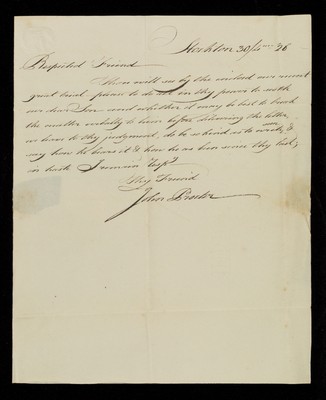 Stockton 30/4 mo 36
Respected Friend
Thou wilt see by the inclosed our recent
great trial. please to do all in thy power to with
our dear Son and whether it may be best to break
the matter verbally to him before delivering the letter,
we leave to thy judgment, do be so kind as to write &
say how he bears it & how he has been since thy last,
in haste I remain respy
Thy Friend
John Procter